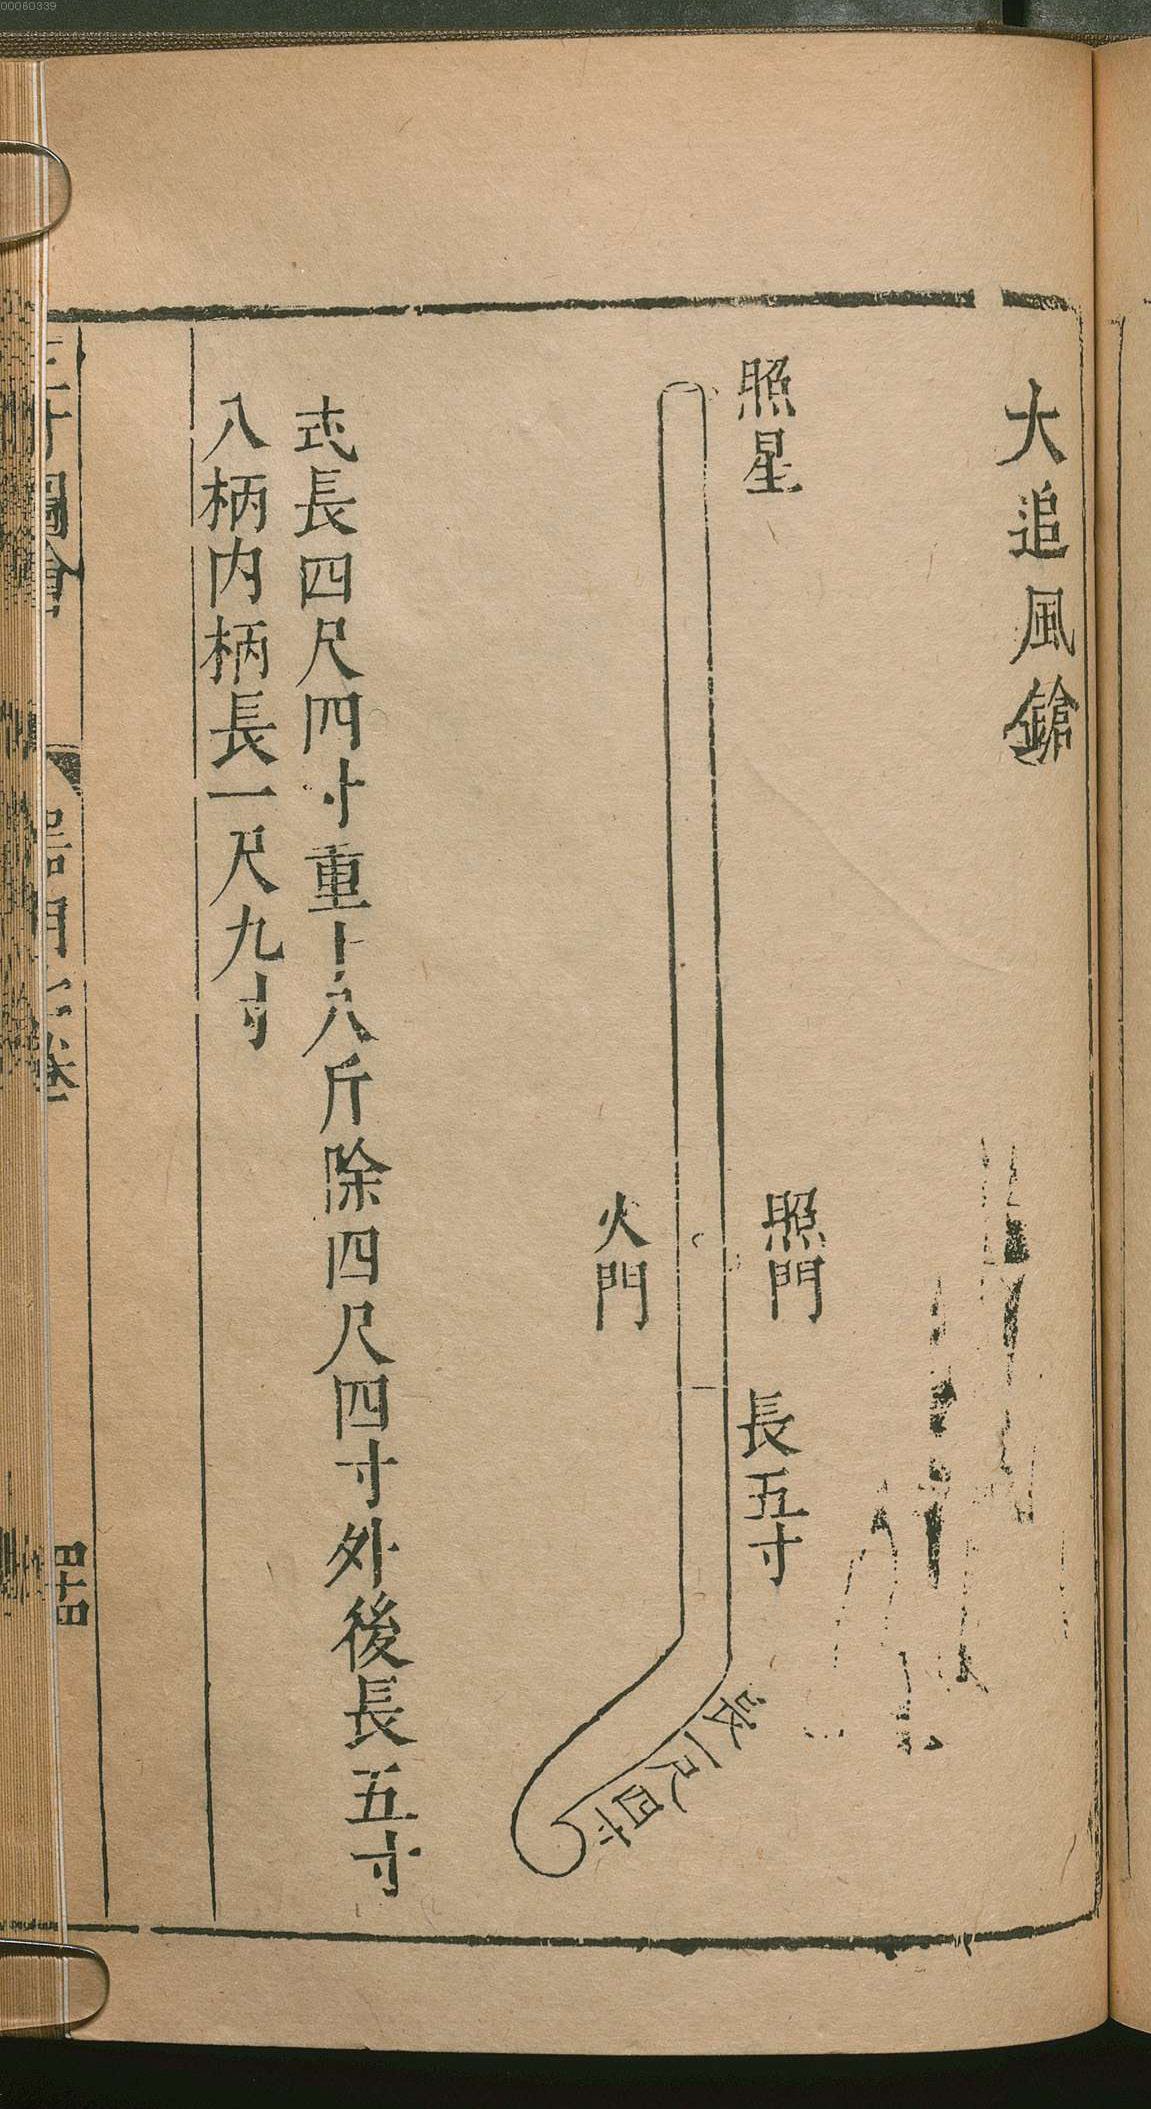 00060339
大追風鎗
照星
照門
長五寸
長一尺四寸
火門
式長四尺四寸重十八斤除四尺四寸外後長五寸
入柄内柄長一尺九寸
圖會
四十四